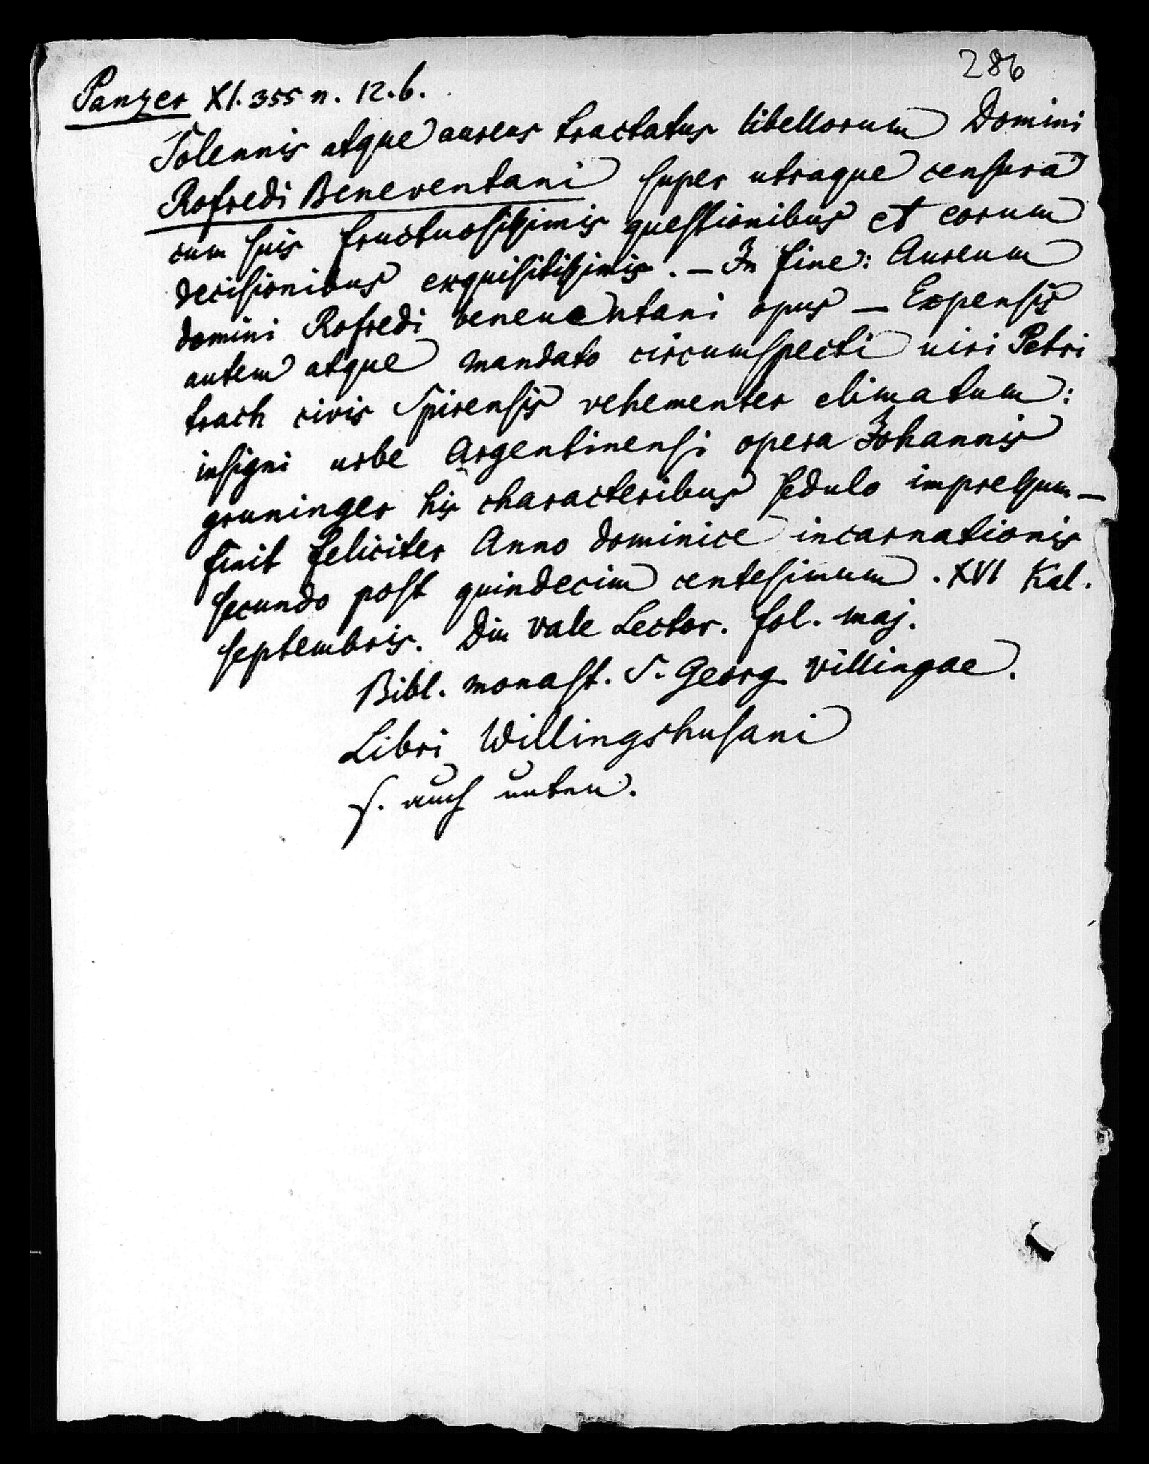 286
Panzer XI. 355 n. 12. b.
Solennis atque aureus tractatus libellorum Domini
Rofredi Beneventani super utraque censura
cum suis fructuosissimis questionibus et eorum
decisionibus exquisitissimis. – In fine: Aureum
domini Rofredi beneuentani opus – Expensis
autem atque mandato circumspecti uiri Petri
trach civis Spirensis vehementer elimatum:
insigni urbe Argentinensi opera Johannis
gruninger his characteribus sedulo impressum –
finit feliciter Anno dominice incarnationis
secundo post quindecim centesimum. XVI Kal.
septembris. Diu vale Lector. fol. maj.
Bibl. monast. S. Georg Villingae.
Libri Willingshusani
s. auch unten.